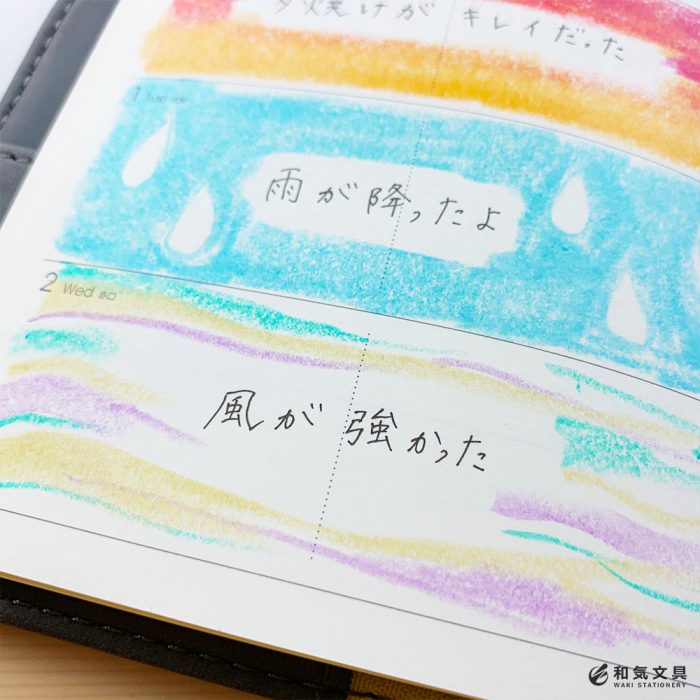 夕焼けがキレイだった
1 Tue
雨が降ったよ
2 Wed 赤口
風が強かった
和気文具
WAKI STATIONERY